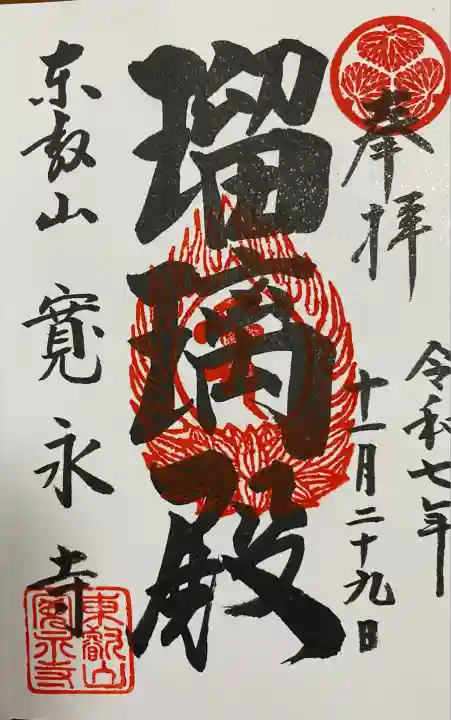 奉拝
令和七年
十一月二十九日
瑠璃殿
东叡山 寛永寺
東叡山
寛永寺